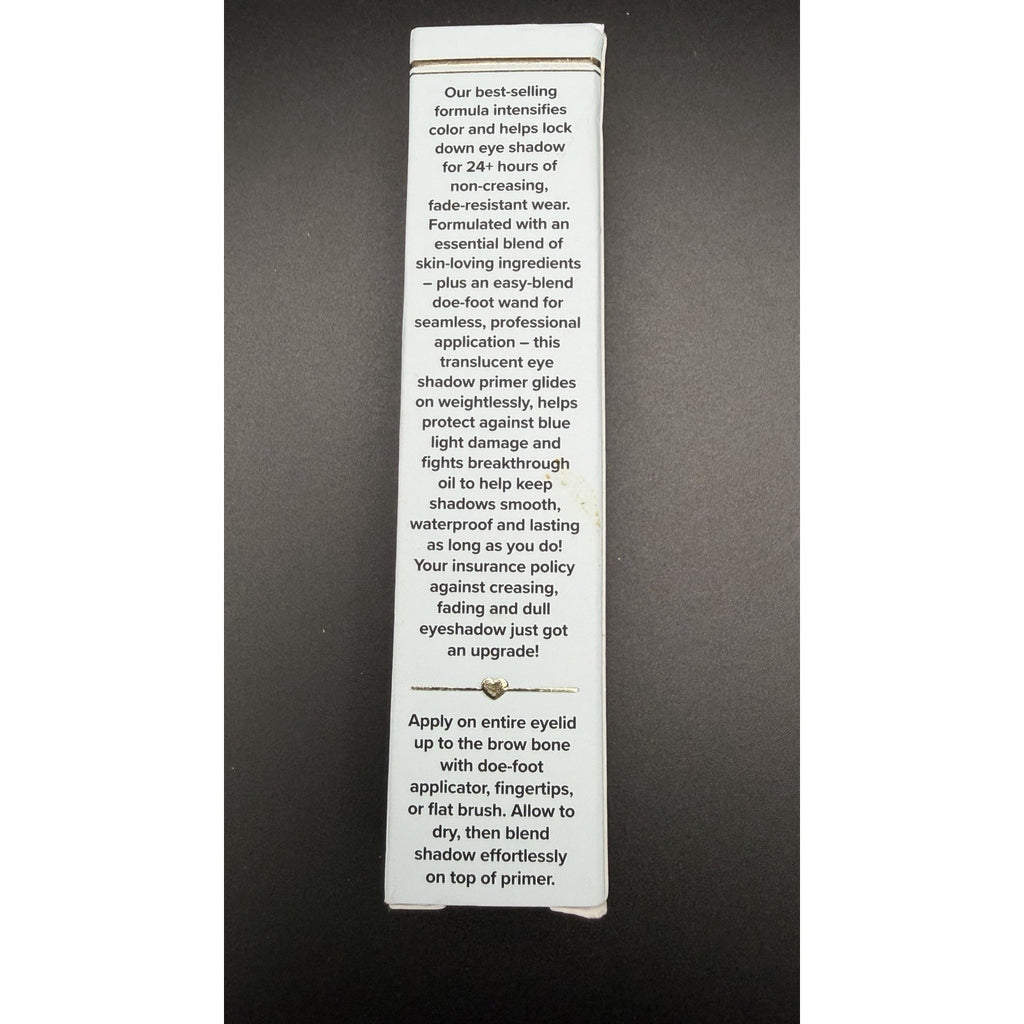 Our best-selling
formula intensifies
color and helps lock
down eye shadow
for 24+ hours of
non-creasing,
fade-resistant wear.
Formulated with an
essential blend of
skin-loving ingredients
– plus an easy-blend
doe-foot wand for
seamless, professional
application – this
translucent eye
shadow primer glides
on weightlessly, helps
protect against blue
light damage and
fights breakthrough
oil to help keep
shadows smooth,
waterproof and lasting
as long as you do!
Your insurance policy
against creasing,
fading and dull
eyeshadow just got
an upgrade!
Apply on entire eyelid
up to the brow bone
with doe-foot
applicator, fingertips,
or flat brush. Allow to
dry, then blend
shadow effortlessly
on top of primer.